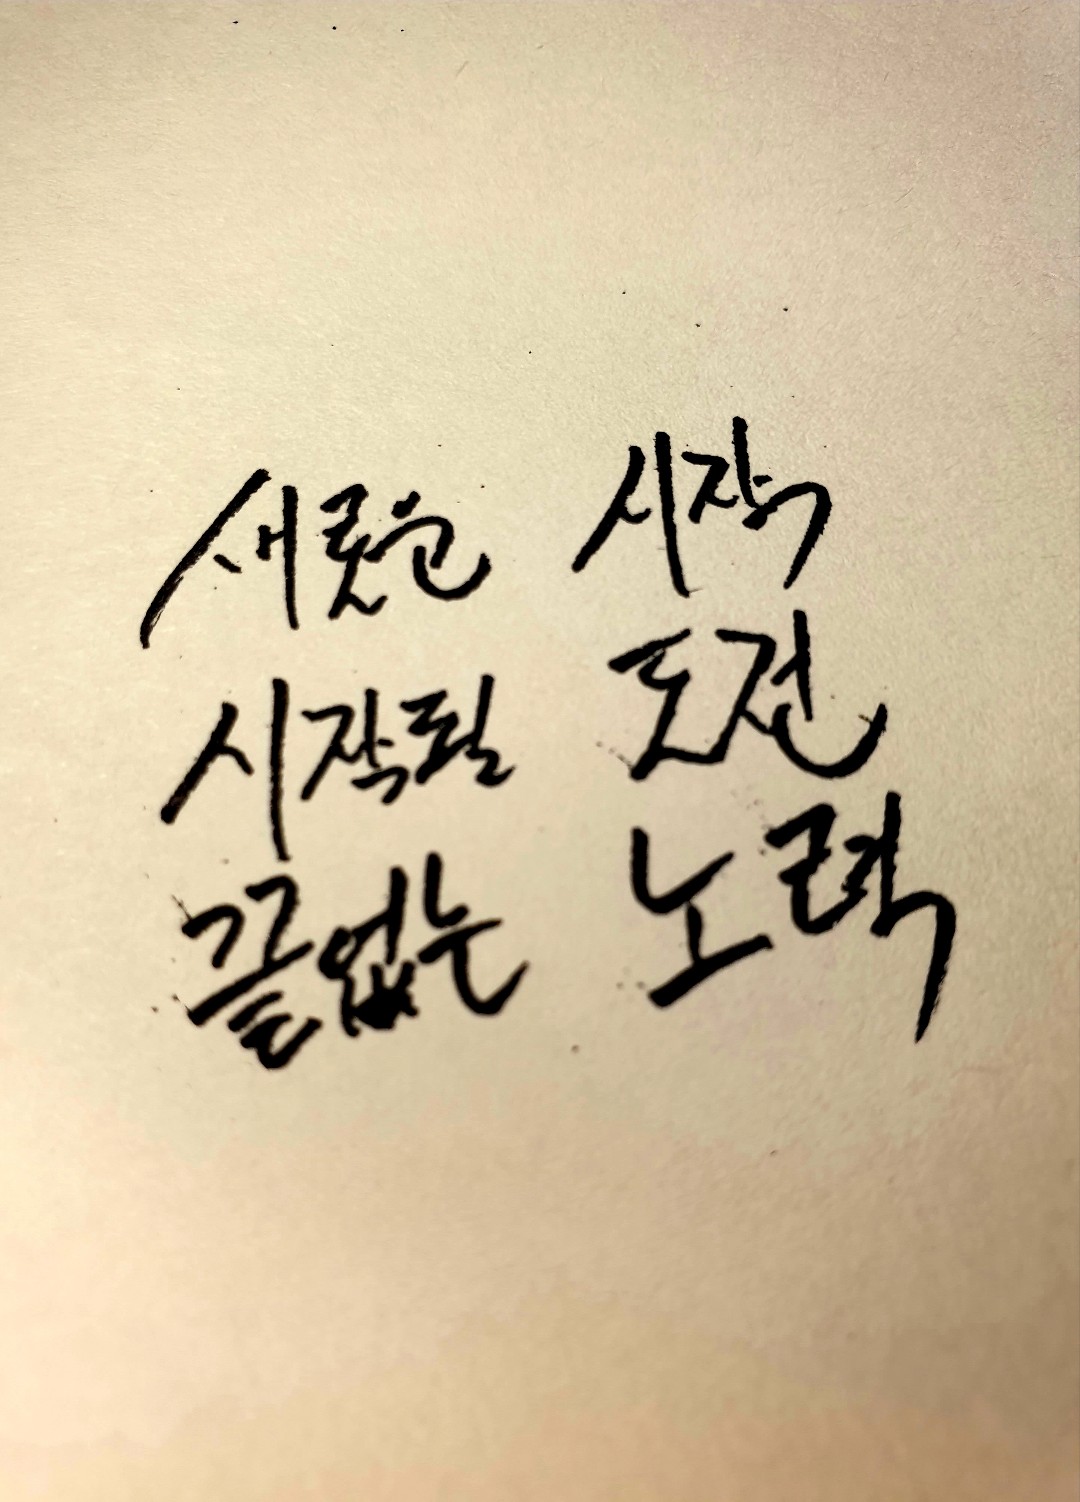 새로운 시작
시작될 도전
끝없는 노력